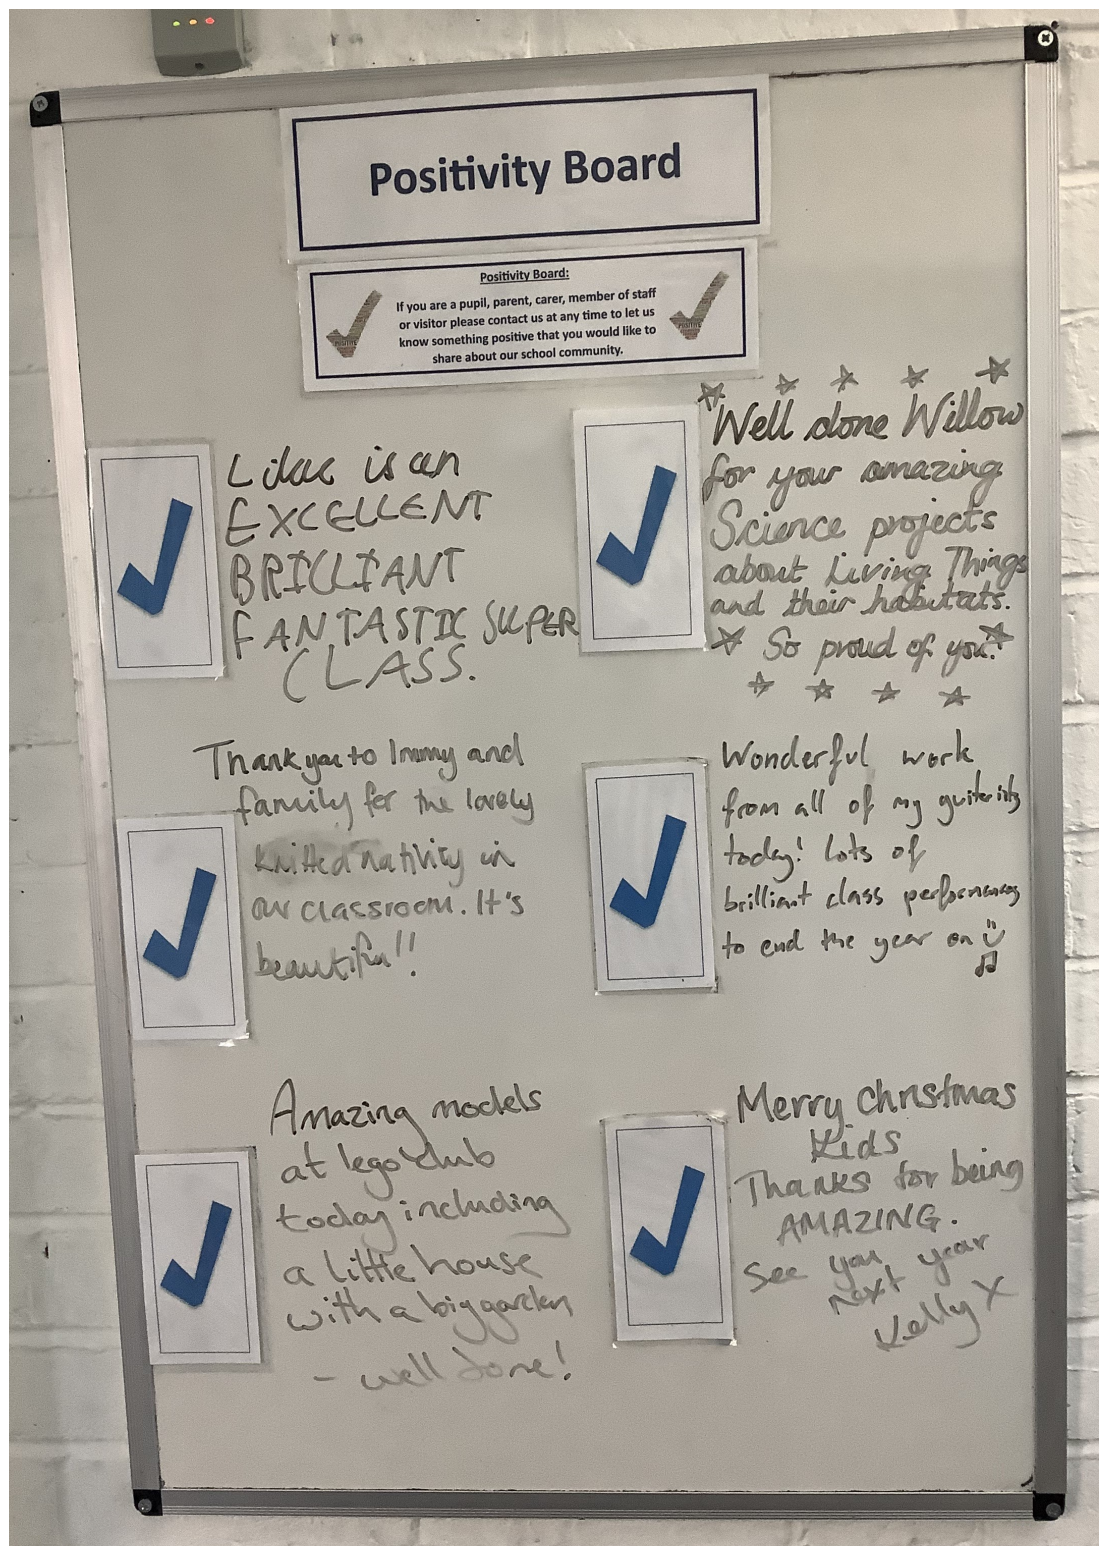 Positivity Board
Positivity Board:
If you are a pupil, parent, carer, member of staff
or visitor please contact us at any time to let us
know something positive that you would like to
share about our school community.
Lilac is an
EXCELLENT
BRILLIANT
FANTASTIC SUPER
CLASS.
Well done Willow
for your amazing
Science projects
about Living Things
and their habitats.
So proud of you.
Thank you to Immy and
family for the lovely
knitted nativity in
our classroom. It's
beautiful!!
Wonderful work
from all of my guiterists
today! Lots of
brilliant class performances
to end the year on
Amazing models
at lego club
today including
a little house
with a big garden
- well done!
Merry Christmas
Kids
Thanks for being
AMAZING.
See you
next year
Kelly X